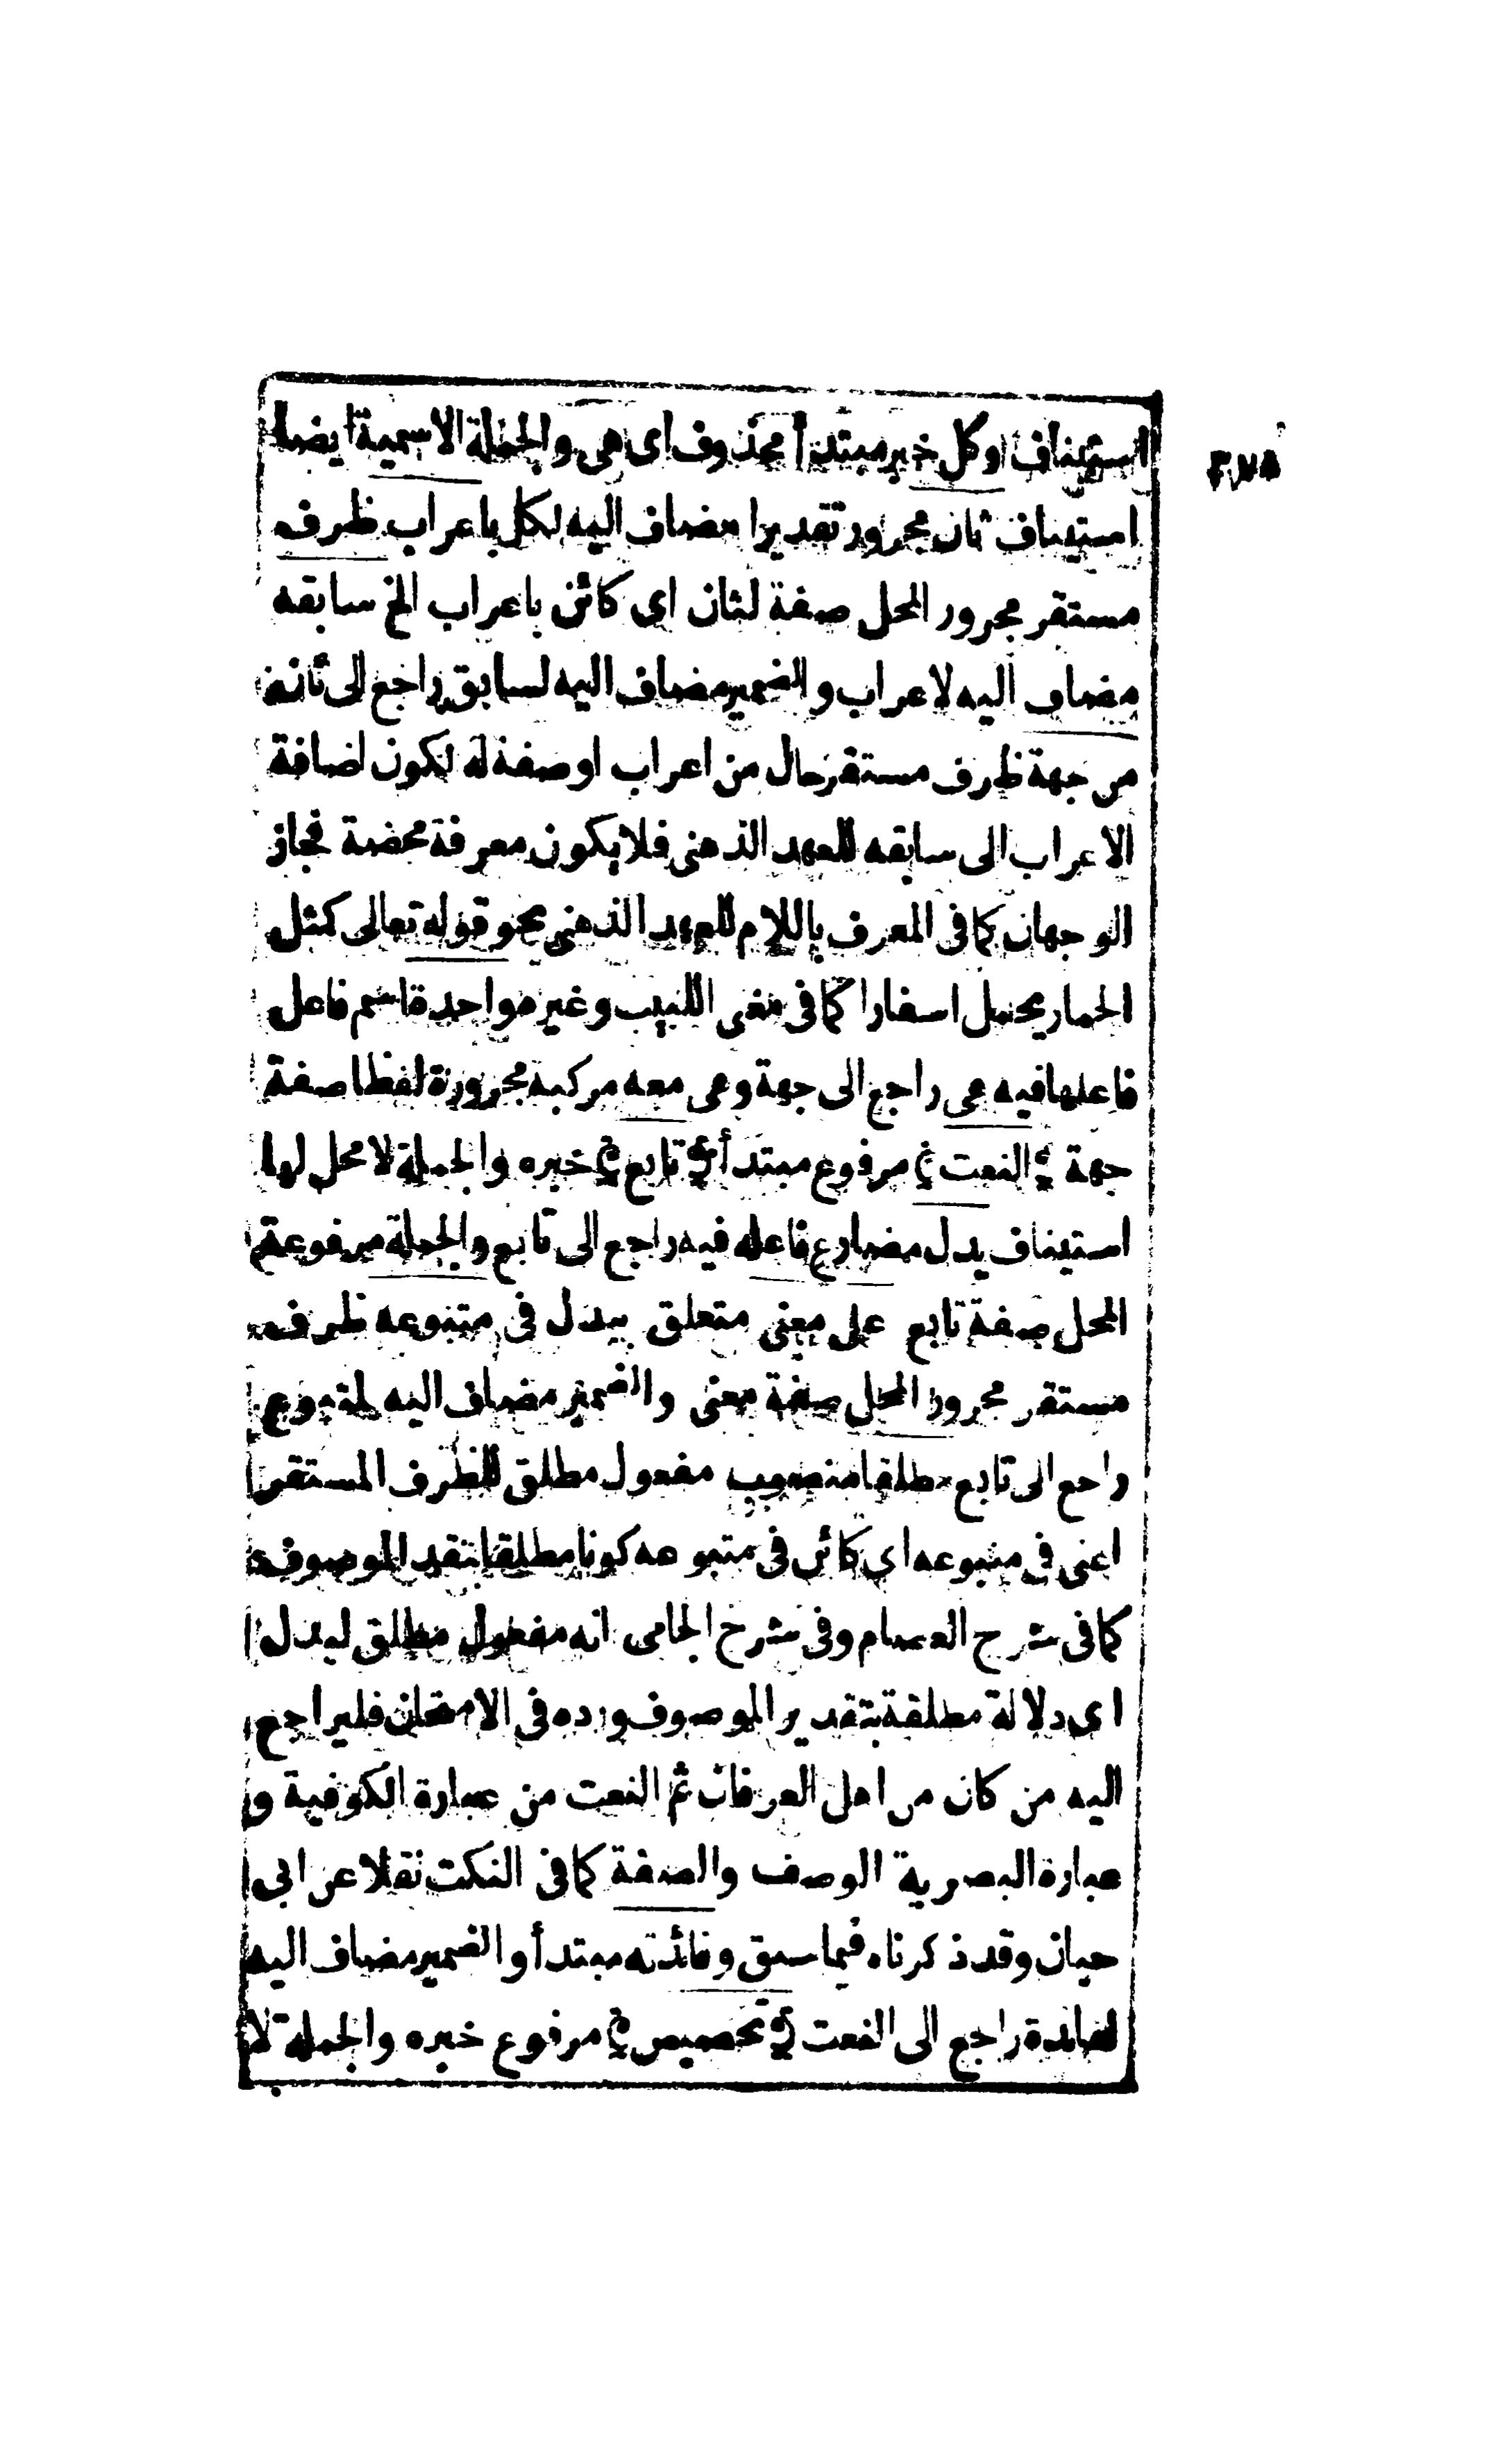 استيناف اوكل خبر مبتدأ محذوف اى هى والجملة الاسمية ايضا
استيناف ثان مجرور تقديرا مضاف اليه لكل باعراب ظرف
مستقر مجرور المحل صفة لثان اى كائن باعراب الخ سابقه
مضاف اليه لاعراب والضمير مضاف اليه لسابق راجع الى ثان
من جهة ظرف مستقر حال من اعراب اوصفة له لكون اضافة
الاعراب الى سابقه للعهد الذهنى فلا يكون معرفة محضة فجاز
الوجهان كما فى المعرف باللام للعهد الذهنى نحو قوله تعالى كمثل
الحمار يحمل اسفارا كما فى مغنى اللبيب وغيره واحدة اسم فاعل
فاعلها فيه هى راجع الى جهة وهى معه مركبة مجرورة لفظا صفة
جهة النعت مرفوع مبتدأ تابع خبره والجملة لا محل لها
استيناف يدل مضارع فاعله فيه راجع الى تابع والجملة مرفوعة
المحل صفة تابع على معنى متعلق بيدل فى متبوعه ظرف
مستقر مجرور المحل صفة معنى والضمير مضاف اليه لمتبوع
راجع الى تابع مطلقا منصوب مفعول مطلق للظرف المستقر
اعنى فى متبوعه اى كائن فى متبوعه كونا مطلقا بتقد الموصوف
كما فى شرح العصام وفى شرح الجامى انه مفعول مطلق ليدل
اى دلالة مطلقة بتقدير الموصوف ورده فى الامتحان فليراجع
اليه من كان من اهل العرفان ثم النعت من عبارة الكوفية و
عبارة البصرية الوصف والصفة كما فى النكت نقلا عن ابى
حيان وقد ذكرناه فيما سبق وفائدته مبتدأ والضمير مضاف اليه
لفائدة راجع الى النعت تخصيص مرفوع خبره والجملة لا